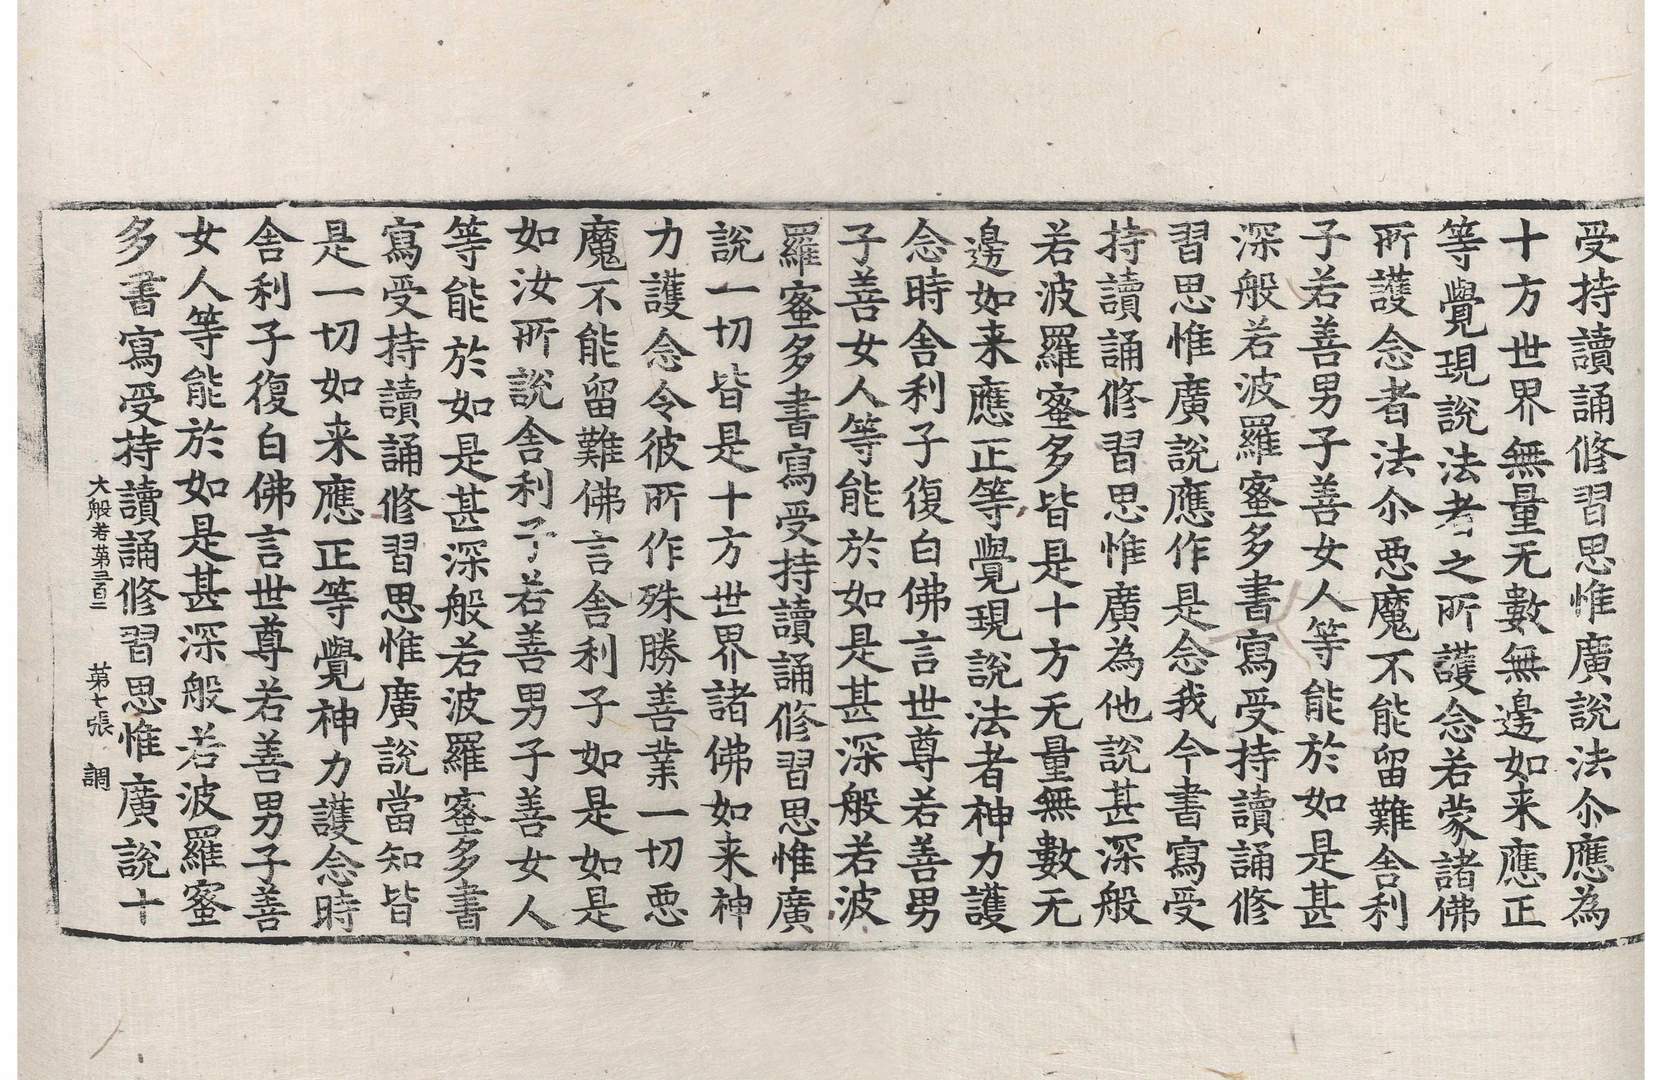 受持讀誦修習思惟廣說法尒應為
十方世界無量无數無邊如来應正
等覺現說法者之所護念若蒙諸佛
所護念者法尒惡魔不能留難舍利
子若善男子善女人等能於如是甚
深般若波羅蜜多書寫受持讀誦修
習思惟廣說應作是念我今書寫受
持讀誦修習思惟廣為他說甚深般
若波羅蜜多皆是十方无量無數无
邊如来應正等覺現說法者神力護
念時舍利子復白佛言世尊若善男
子善女人等能於如是甚深般若波
羅蜜多書寫受持讀誦修習思惟廣
說一切皆是十方世界諸佛如来神
力護念令彼所作殊勝善業一切惡
魔不能留難佛言舍利子如是如是
如汝所說舍利子若善男子善女人
等能於如是甚深般若波羅蜜多書
寫受持讀誦修習思惟廣說當知皆
是一切如来應正等覺神力護念時
舍利子復白佛言世尊若善男子善
女人等能於如是甚深般若波羅蜜
多書寫受持讀誦修習思惟廣說十
大般若第三百二 第七張 調